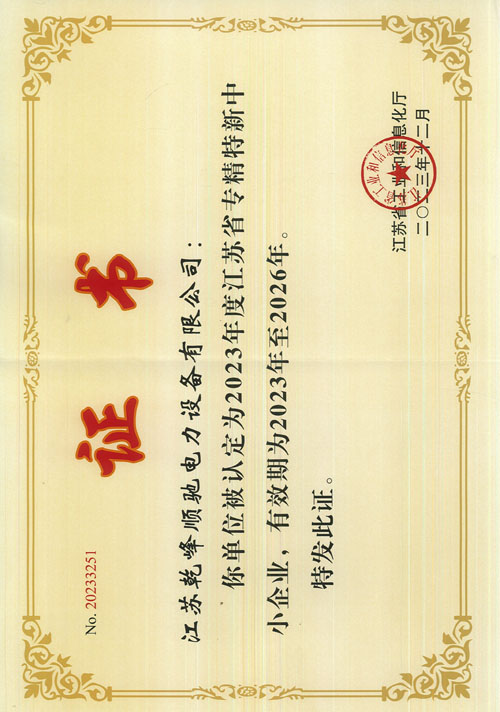 证 书
No. 20233251
江苏乾峰顺驰电力设备有限公司：
你单位被认定为2023年度江苏省专精特新中
小企业，有效期为2023年至2026年。
特发此证。
江苏省工业和信息化厅
二〇二三年十二月